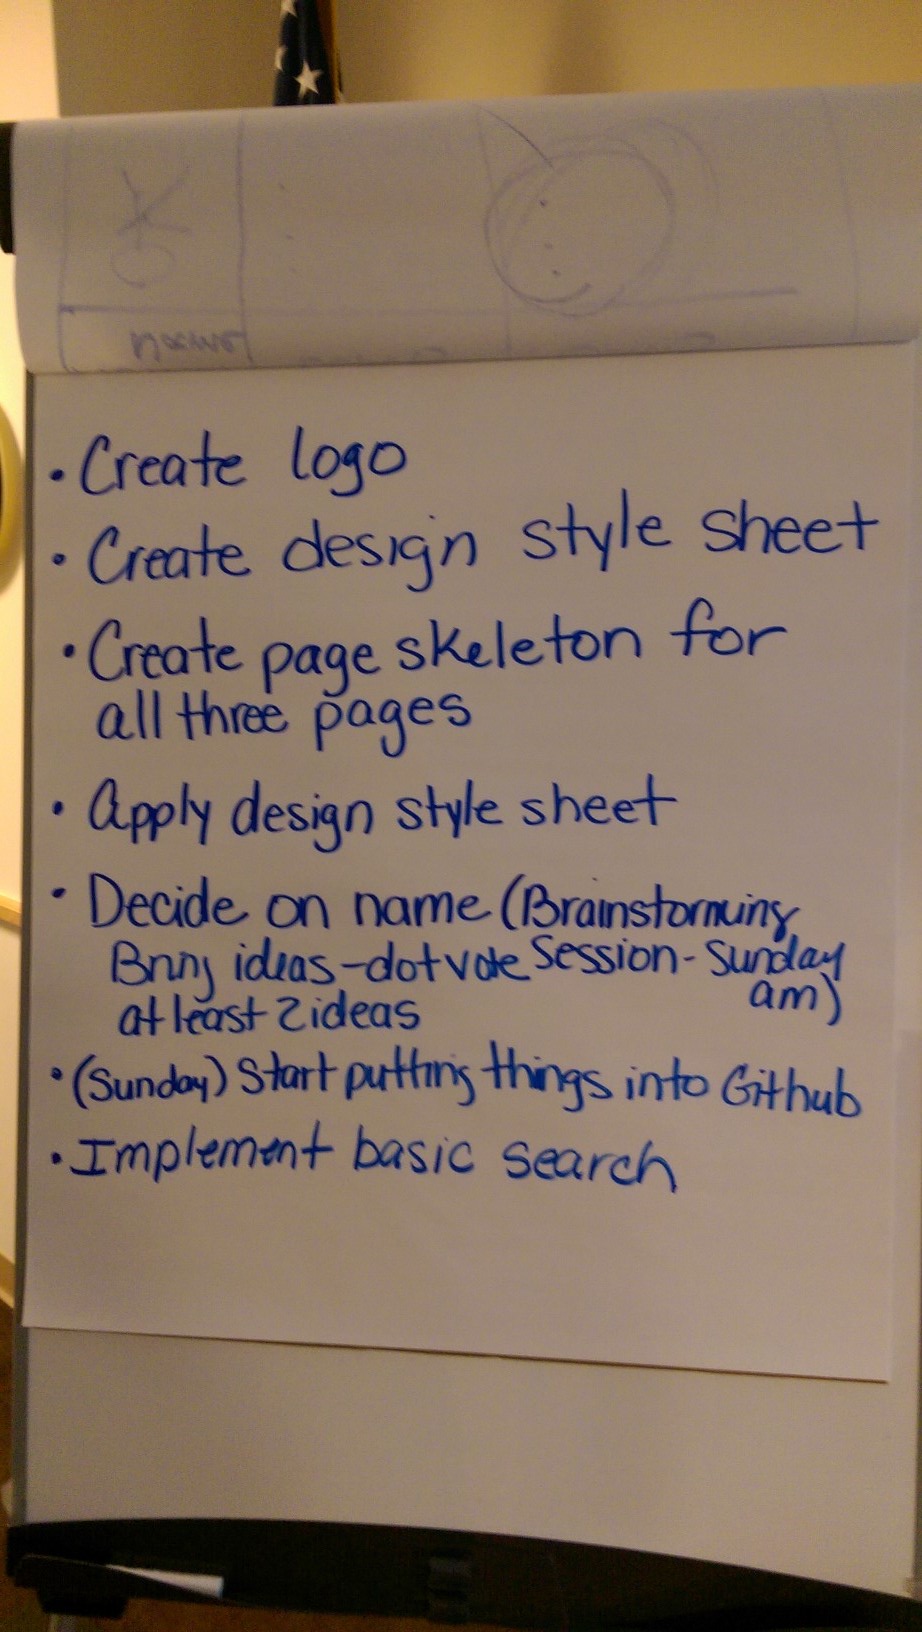 • Create logo
• Create design style sheet
• Create page skeleton for
all three pages
• Apply design style sheet
• Decide on name (Brainstorming
Bring ideas - dot vote Session - Sunday
at least 2 ideas am)
• (Sunday) Start putting things into Github
• Implement basic search